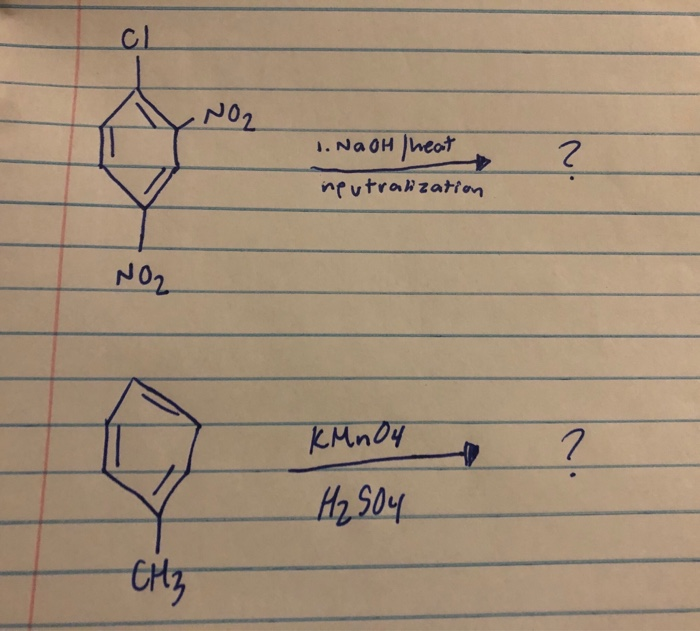 Cl
NO2
1. NaOH/heat
?
neutralization
NO2
KMnO4
?
H2SO4
CH3